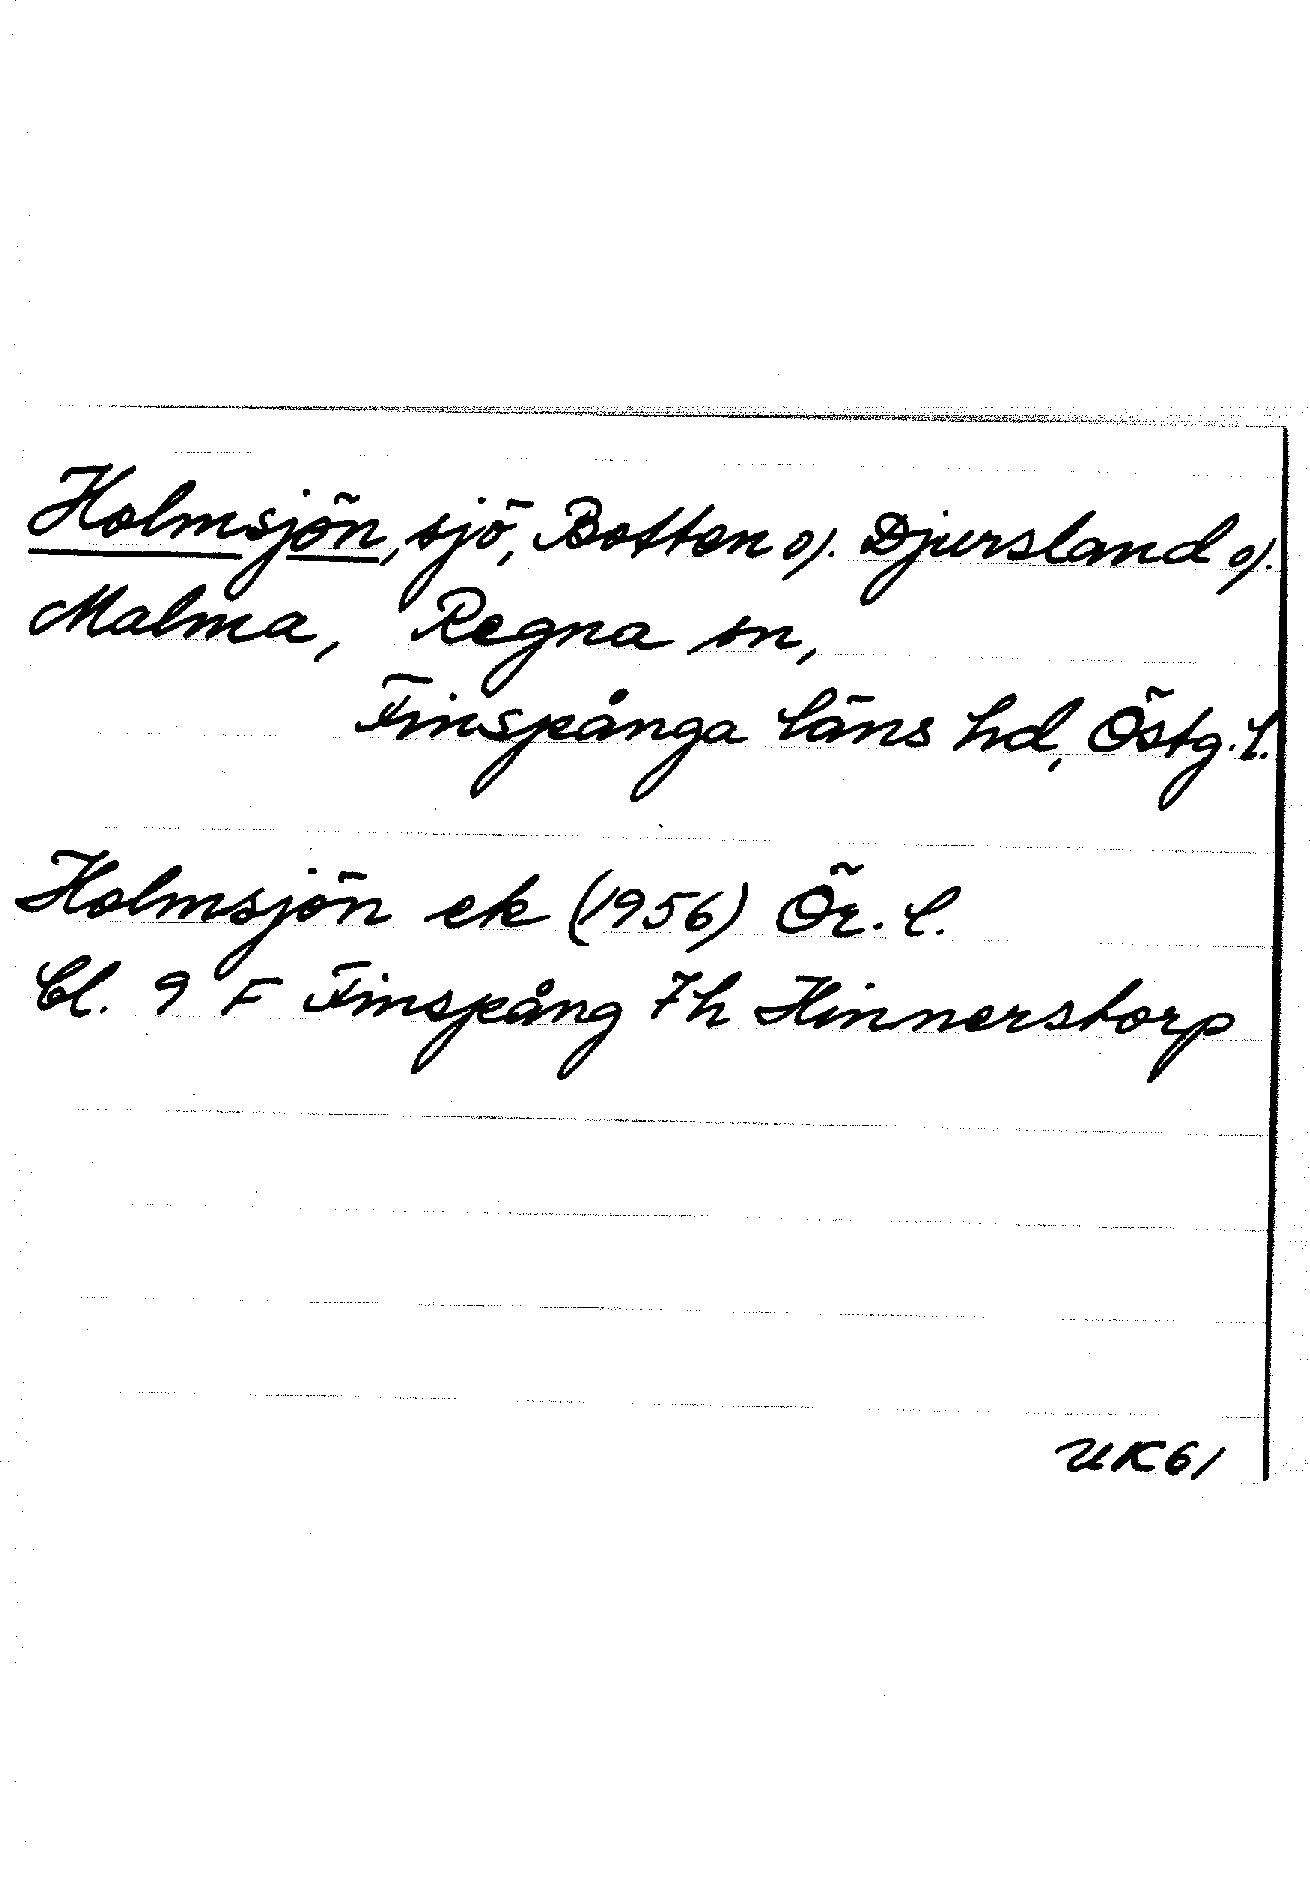 Holmsjön, sjö, Botten o/. Djursland o/.
Malma, Regna sn,
Finspånga läns hd, Östg. l.
Holmsjön ek (1956) Ör. l.
Bl. 9 F Finspång 7h Hinnerstorp
UK61